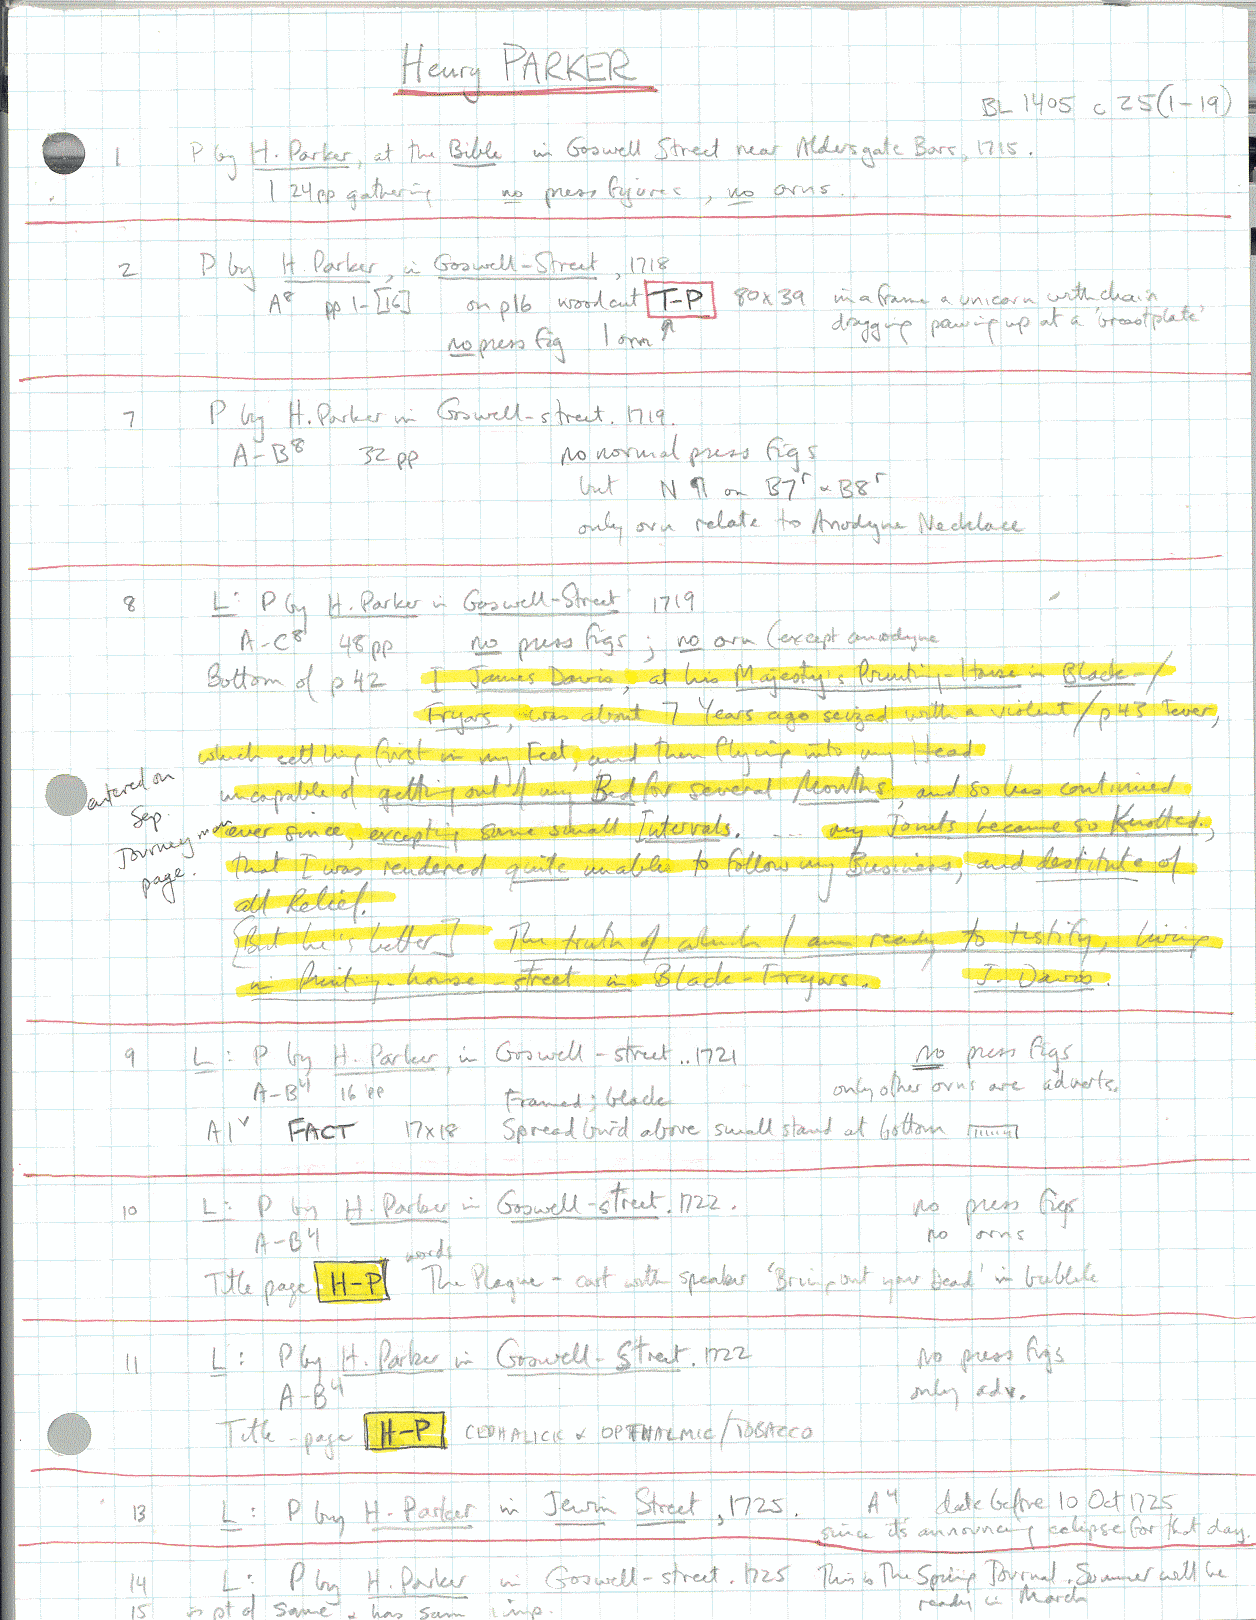 Henry PARKER
BL 1405 c 25 (1-19)
1 P by H. Parker, at the Bible in Goswell Street near Aldersgate Bars, 1715.
1 24pp gathering no press figures, no orns.
2 P by H. Parker, in Goswell-Street, 1718
A8 pp 1-[16] on p16 woodcut T-P 80x39 in a frame a unicorn with chain
dragging pawing up at a 'breastplate'
no press fig 1 orn ↑
7 P by H. Parker in Goswell-street. 1719.
A-B8 32pp no normal press figs
but N ¶ on B7r & B8r
only orn relate to Anodyne Necklace
8 L: P by H. Parker in Goswell-Street 1719
A-C8 48pp no press figs; no orn (except anodyne
Bottom of p 42 I James Davis, at his Majesty's Printing-House in Black-/
Fryars, was about 7 Years ago seized with a violent / p43 Fever,
which settling first in my Feet, and then flying into my Head
uncapable of getting out of my Bed for several Months, and so has continued
ever since, excepting some small Intervals. .... my Joints became so Knotted,
that I was rendered quite unable to follow my Business, and destitute of
all Relief.
[But he's better] The truth of which I am ready to testify, living
in Printing-house-street in Black-Fryars. J. Davis.
entered on
Sep.
Journeyman
page.
9 L: P by H. Parker, in Goswell-street..1721 no press figs
A-B4 16pp only other orns are adverts.
Framed; black
A1v FACT 17x18 Spread bird above small stand at bottom
10 L: P by H. Parker in Goswell-street. 1722. no press figs
A-B4 no orns
words
Title page H-P The Plague - cart with speaker 'Bring out your Dead' in bubble
11 L: P by H. Parker in Goswell-Street. 1722 No press figs
A-B4 only adv.
Title-page H-P CEPHALICK & OPTHALMIC/TOBACCO
13 L: P by H. Parker in Jewin Street, 1725. A4 date before 10 Oct 1725
since it's announcing eclipse for that day.
14 L: P by H. Parker in Goswell-street. 1725 This is The Spring Journal. Summer will be
ready in March
15 is pt of same & has same imp.